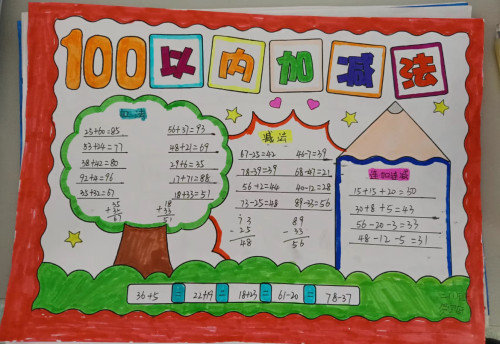 100以内加减法
25+60=85 56+37=93
53+24=77 48+21=69
38+42=80 29+6=35
92+4=96 17+71=88
35+32=67 18+33=51
35 18
+32 +33
67 51
减法
67-25=42 46-7=39
78-39=39 68-47=21
56-12=44 40-12=28
73-25=48 89-33=56
73 89
-25 -33
48 56
连加连减
15+15+20=50
30+8+5=43
56-20-3=33
48-12-5=31
36+5 = 22+19 = 18+23 = 61-20 = 78-37